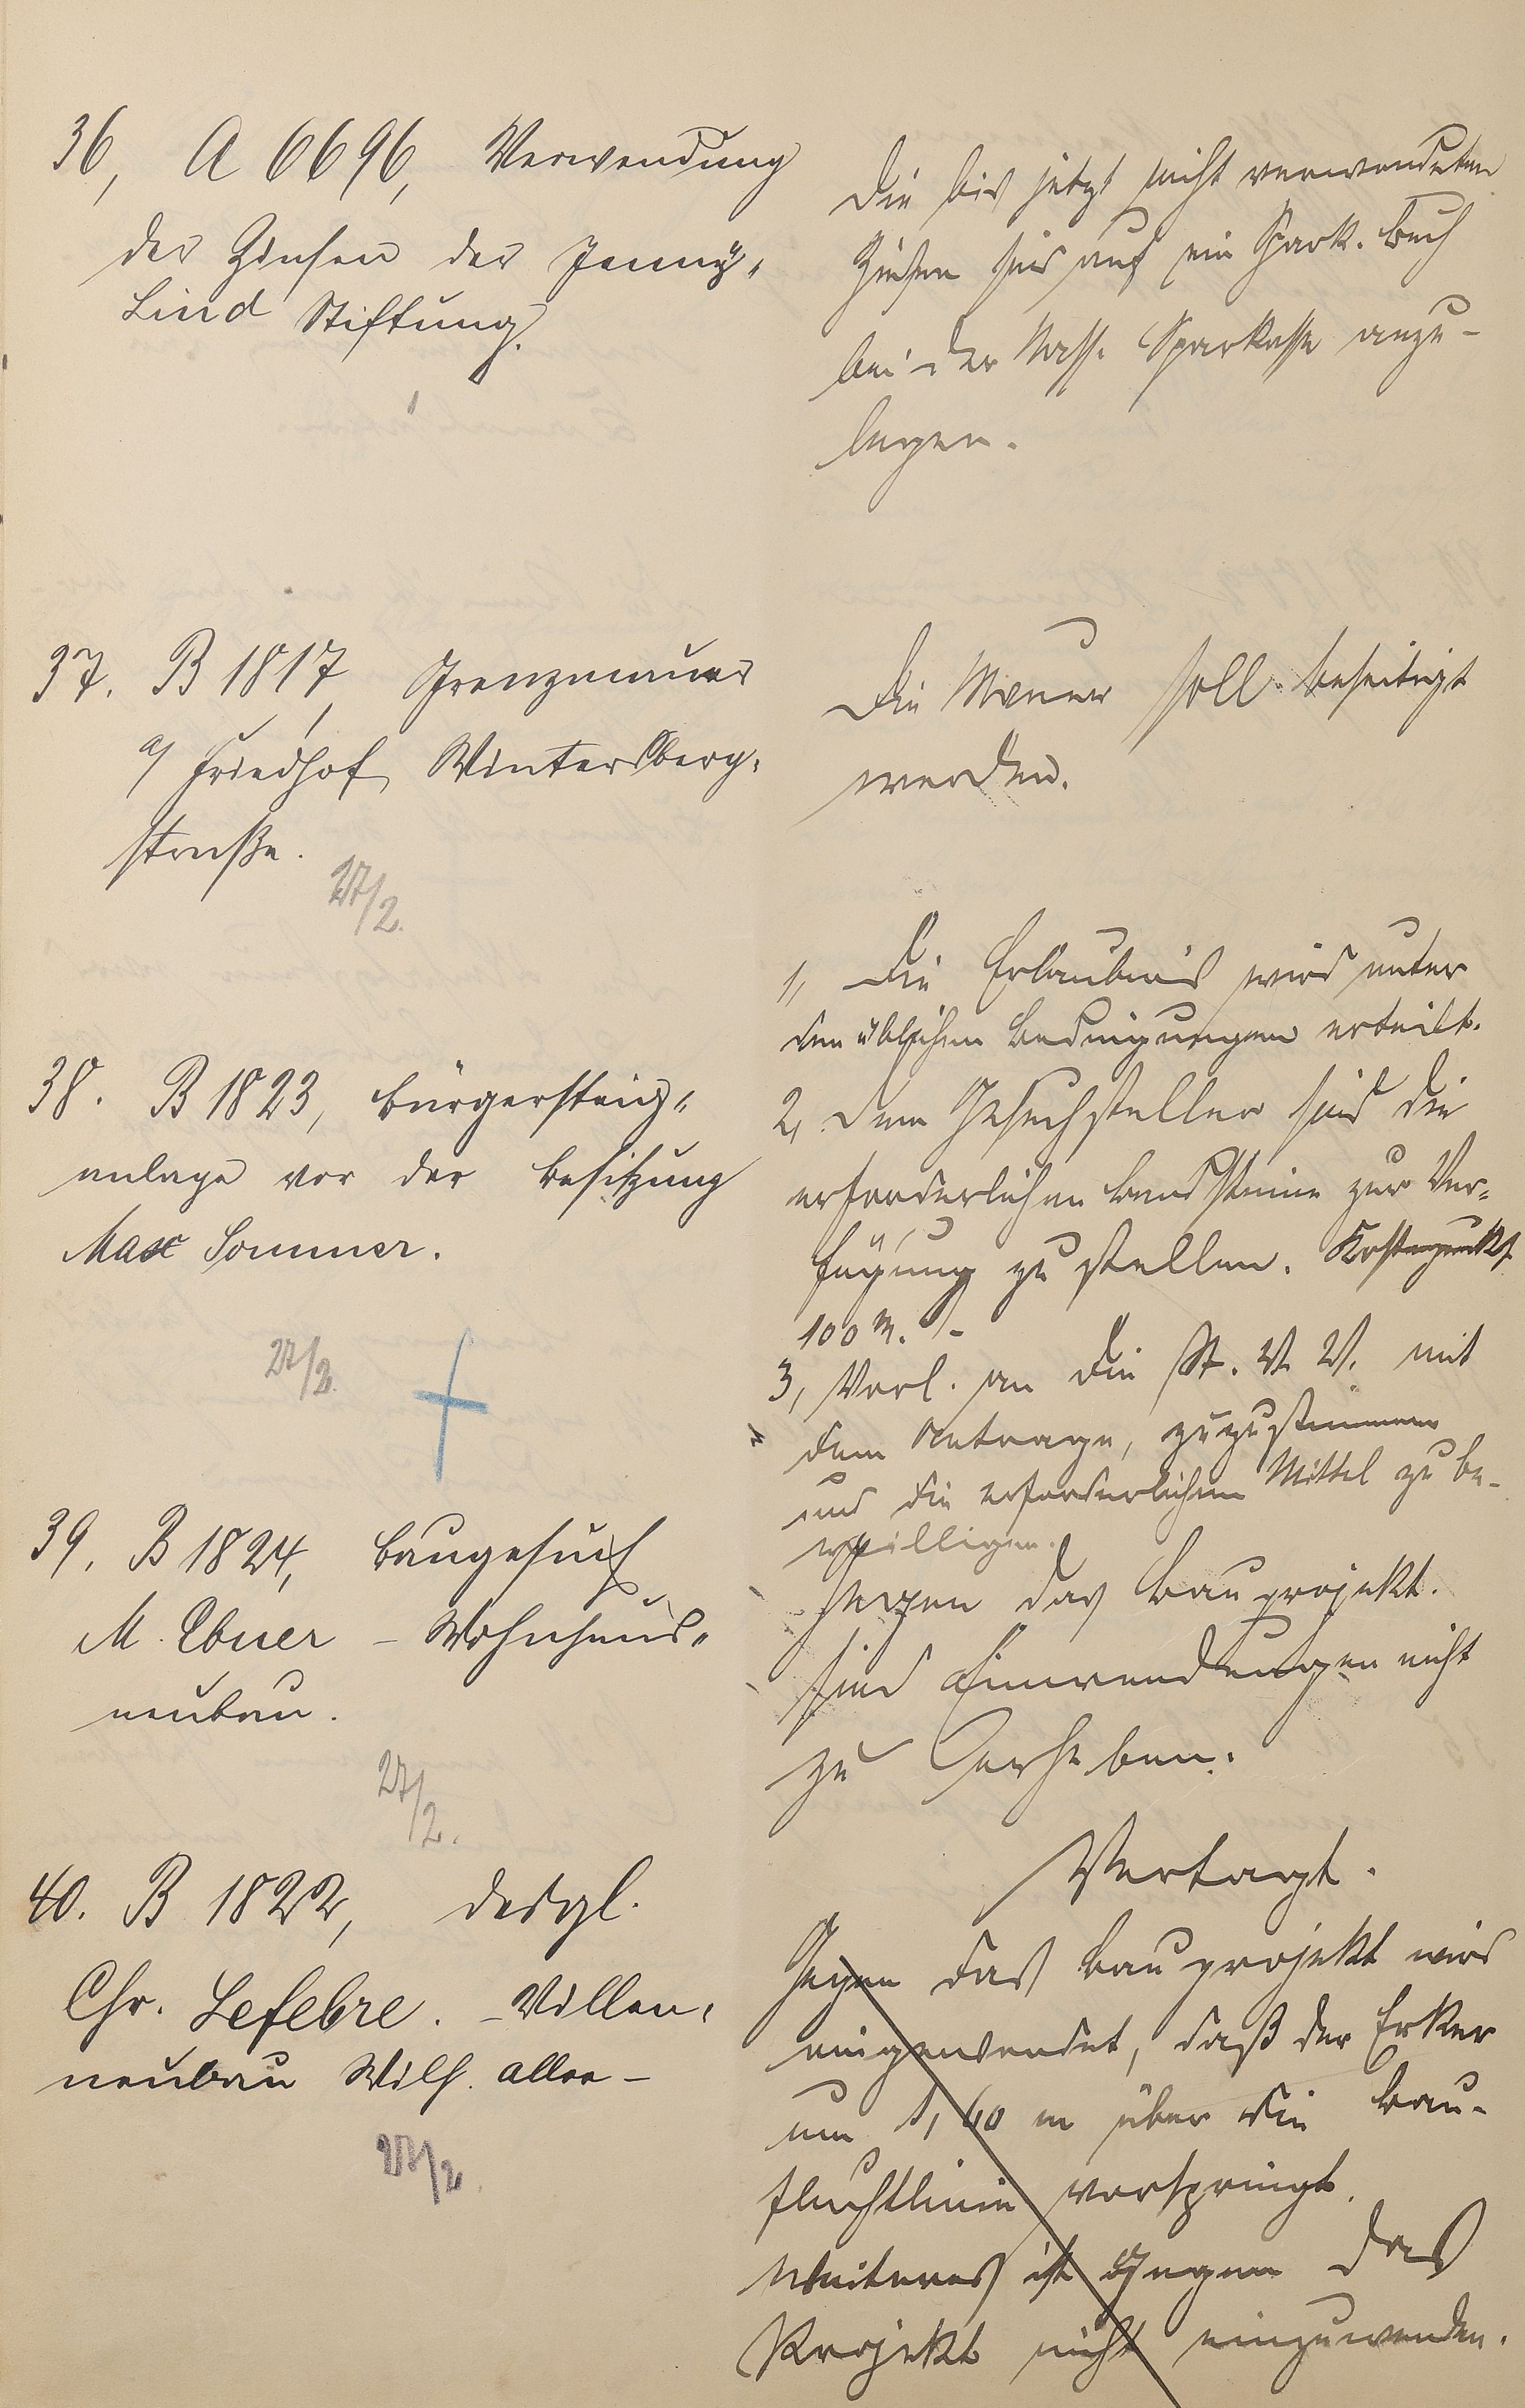 36, A 6696, Verwendung
der Zinsen der Jenny-
Lind Stiftung.
Die bis jetzt nicht verwendeten
Zinsen sind auf ein Spark. Buch
bei der Nass. Sparkasse anzu-
legen.
37. B 1817, Grenzmauer
a/ Friedhof, Wintersberg-
straße.
27/2.
Die Mauer soll beseitigt
werden.
38. B 1823, Bürgersteig-
anlage vor der Besitzung
Max Sommer.
27/2.
1, Die Erlaubnis wird unter
den üblichen Bedingungen erteilt.
2, Dem Gesuchsteller sind die
erforderlichen Bandsteine zur Ver-
fügung zu stellen. Kostenpunkt
100 M. -
3, Vorl. an die St. V. V. mit
dem Antrage, zuzustimmen
und die erforderlichen Mittel zu be-
willigen.
39. B 1824, Baugesuch
M. Ebner - Wohnhaus-
neubau.
27/2.
Gegen das Bauprojekt
sind Einwendungen nicht
zu erheben.
40. B 1822, desgl.
Chr. Lefebre. - Villen-
neubau Wilh. allee -
27/2.
Vertagt.
Gegen das Bauprojekt wird
eingewendet, daß der Erker
um 1,60 m über die Bau-
fluchtlinie vorspringt.
Weiteres ist gegen das
Projekt nicht einzuwenden.